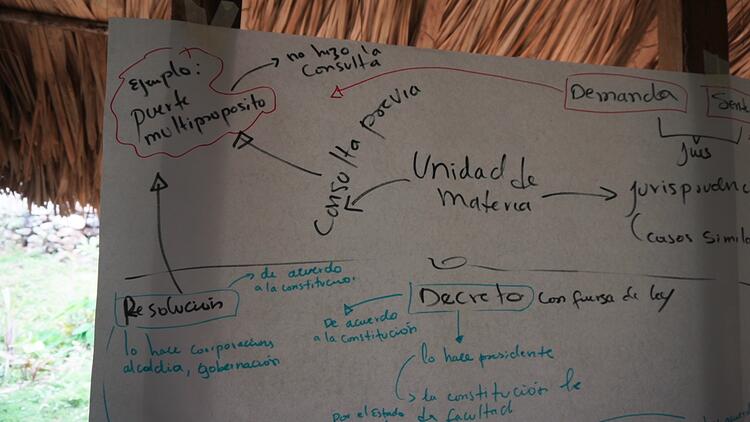 Ejemplo:
puerte
multiproposito
no hizo la
Consulta
Demanda
Sent
jues
Consulta previa
Unidad de
materia
jurisprudenc
(casos simila
Resolución
de acuerdo
a la constitucion.
lo hace corporacion,
alcaldia, gobernación
Decreto con fuersa de ley
De acuerdo
a la constitución
lo hace presidente
la constitución le
da facultad
Por el Estado